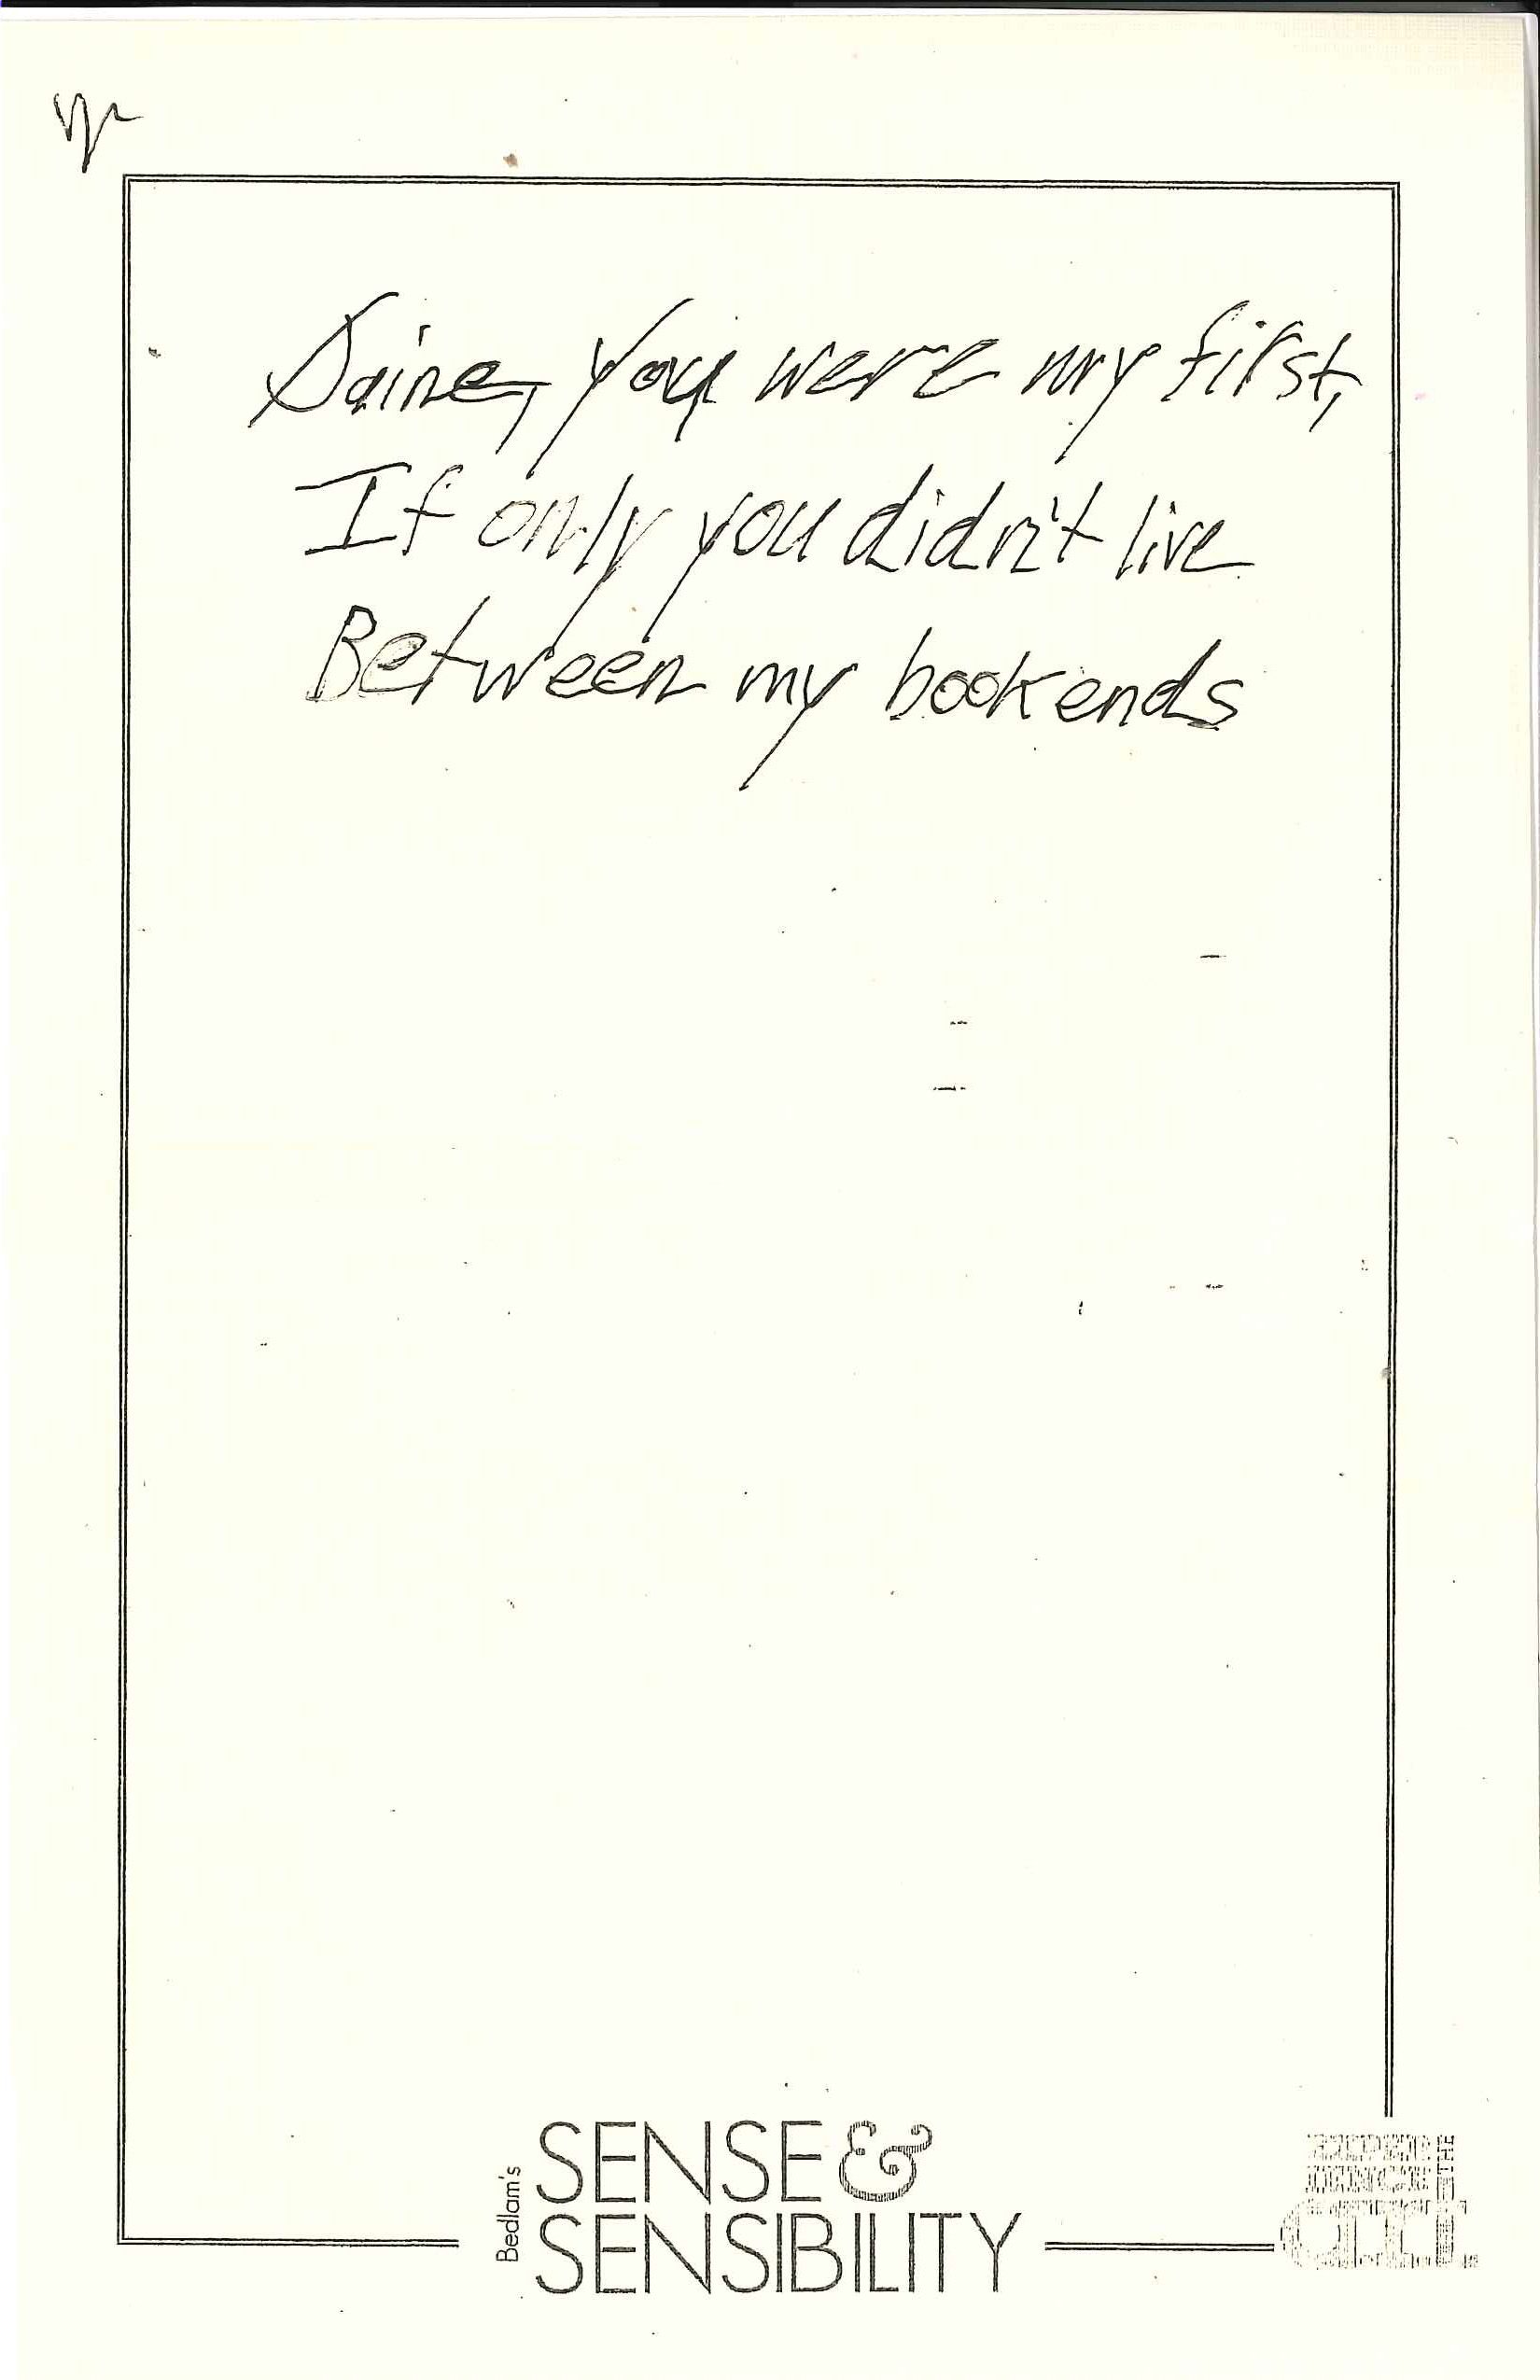 Daine, you were my first,
If only you didn't live
Between my bookends
Bedlam's
SENSE &
SENSIBILITY
EXPERIENCE THE